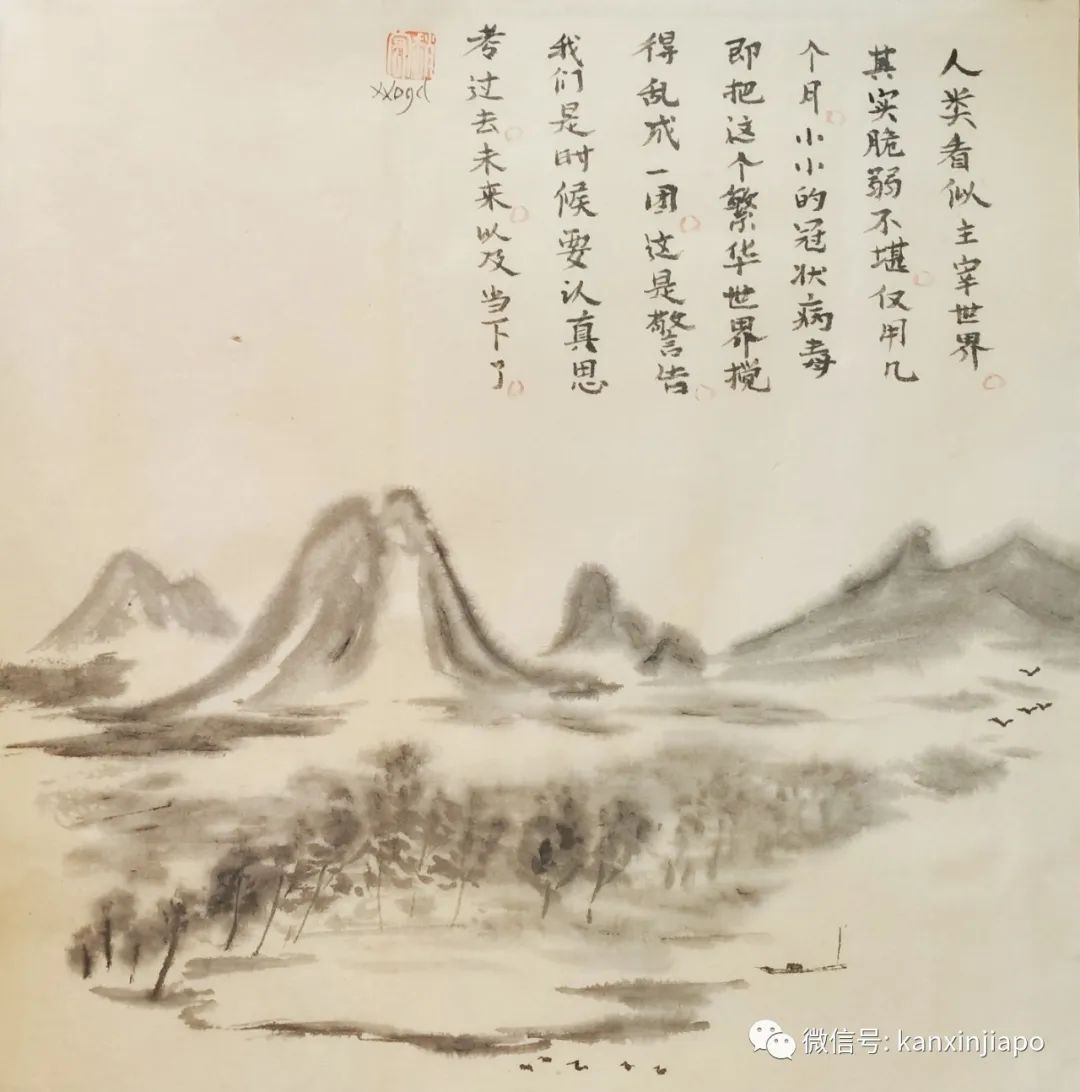 人类看似主宰世界。
其实脆弱不堪。仅用几
个月。小小的冠状病毒
即把这个繁华世界搅
得乱成一团。这是警告。
我们是时候要认真思
考过去。未来。以及当下了。
xxogd
微信号: kanxinjiapo